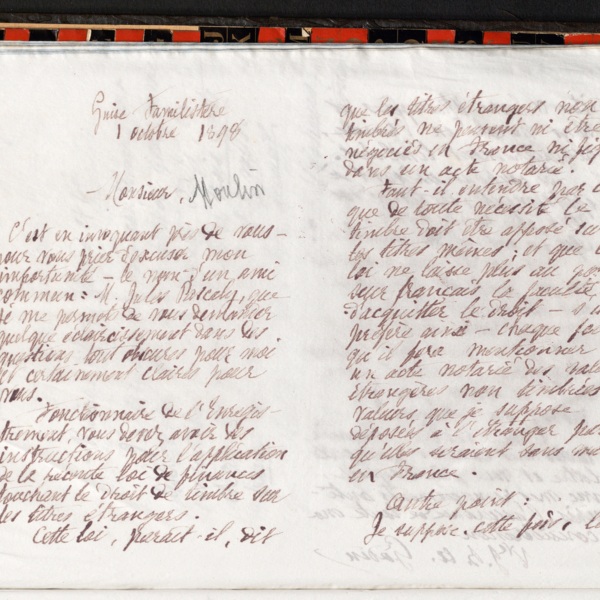 Guise Familistère
1 octobre 1898
Monsieur, Moulin
C'est en invoquant près de vous –
pour vous prier d'excuser mon
importunité – le nom d'un ami
commun : M. Jules Pascaly, que
je me permets de vous demander
quelque éclaircissement dans des
questions tout obscures pour moi
et certainement claires pour
vous.
Fonctionnaire de l'Enregis-
trement, vous devez avoir des
instructions pour l'application
de la récente loi de finances
touchant le droit de timbre sur
les titres étrangers.
Cette loi, paraît-il, dit
que les titres étrangers non
timbrés ne peuvent ni être
négociés en France ni
dans un acte notarié.
Faut-il entendre par
que de toute nécessité le
timbre doit être apposé
les titres mêmes ; et que
loi ne laisse plus au
seur français la faculté
d'acquitter le débit –
préfère ainsi – chaque
qu'il fera mentionner
un acte notarié des
étrangères non timbrées
valeurs, que je suppose
déposées à l'étranger
qu'elles seraient sans
en France.
Autre point :
Je suppose, cette fois,